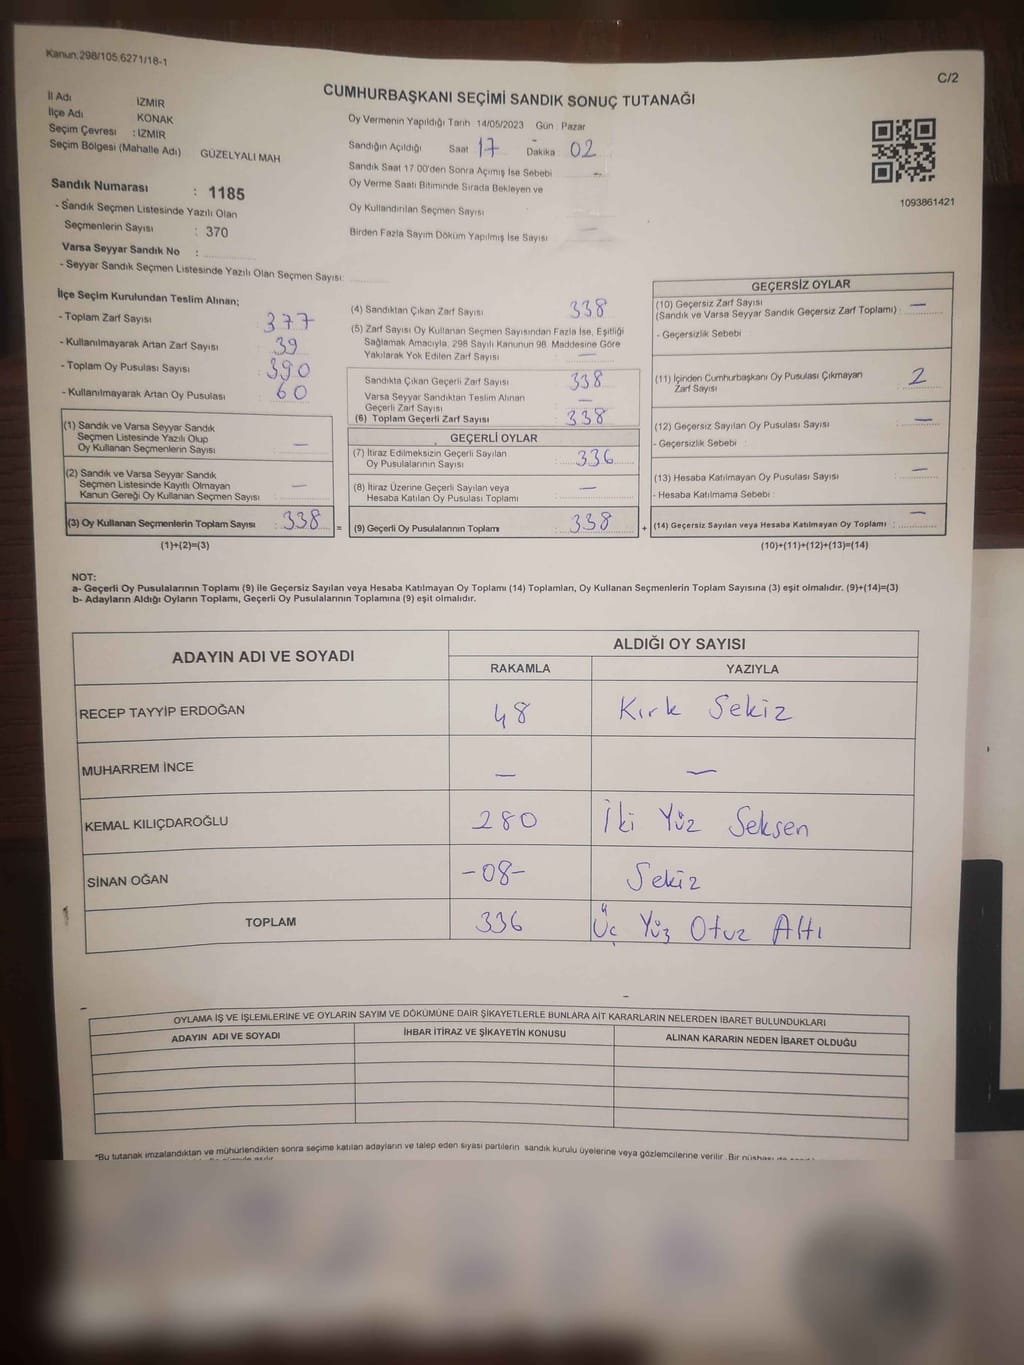 Kanun:298/105.6271/18-1
C/2
CUMHURBAŞKANI SEÇİMİ SANDIK SONUÇ TUTANAĞI
İl Adı İZMİR
İlçe Adı KONAK
Seçim Çevresi : İZMİR
Seçim Bölgesi (Mahalle Adı) GÜZELYALI MAH
Sandık Numarası : 1185
- Sandık Seçmen Listesinde Yazılı Olan
Seçmenlerin Sayısı : 370
Varsa Seyyar Sandık No :
- Seyyar Sandık Seçmen Listesinde Yazılı Olan Seçmen Sayısı:
Oy Vermenin Yapıldığı Tarih 14/05/2023 Gün : Pazar
Sandığın Açıldığı Saat 17 Dakika 02
Sandık Saat 17 00'den Sonra Açılmış İse Sebebi –
Oy Verme Saati Bitiminde Sırada Bekleyen ve
Oy Kullandırılan Seçmen Sayısı
Birden Fazla Sayım Döküm Yapılmış İse Sayısı –
1093861421
İlçe Seçim Kurulundan Teslim Alınan;
- Toplam Zarf Sayısı : 377
- Kullanılmayarak Artan Zarf Sayısı : 39
- Toplam Oy Pusulası Sayısı : 390
- Kullanılmayarak Artan Oy Pusulası : 60
(1) Sandık ve Varsa Seyyar Sandık
Seçmen Listesinde Yazılı Olup
Oy Kullanan Seçmenlerin Sayısı : –
(2) Sandık ve Varsa Seyyar Sandık
Seçmen Listesinde Kayıtlı Olmayan
Kanun Gereği Oy Kullanan Seçmen Sayısı : –
(3) Oy Kullanan Seçmenlerin Toplam Sayısı : 338 =
(1)+(2)=(3)
(4) Sandıktan Çıkan Zarf Sayısı : 338
(5) Zarf Sayısı Oy Kullanan Seçmen Sayısından Fazla İse, Eşitliği
Sağlamak Amacıyla, 298 Sayılı Kanunun 98. Maddesine Göre
Yakılarak Yok Edilen Zarf Sayısı : –
Sandıkta Çıkan Geçerli Zarf Sayısı : 338
Varsa Seyyar Sandıktan Teslim Alınan
Geçerli Zarf Sayısı : –
(6) Toplam Geçerli Zarf Sayısı : 338
GEÇERLİ OYLAR
(7) İtiraz Edilmeksizin Geçerli Sayılan
Oy Pusulalarının Sayısı : 336
(8) İtiraz Üzerine Geçerli Sayılan veya
Hesaba Katılan Oy Pusulası Toplamı : –
(9) Geçerli Oy Pusulalarının Toplamı : 338 +
GEÇERSİZ OYLAR
(10) Geçersiz Zarf Sayısı
(Sandık ve Varsa Seyyar Sandık Geçersiz Zarf Toplamı) : –
- Geçersizlik Sebebi :
(11) İçinden Cumhurbaşkanı Oy Pusulası Çıkmayan
Zarf Sayısı : 2
(12) Geçersiz Sayılan Oy Pusulası Sayısı : –
- Geçersizlik Sebebi :
(13) Hesaba Katılmayan Oy Pusulası Sayısı : –
- Hesaba Katılmama Sebebi :
(14) Geçersiz Sayılan veya Hesaba Katılmayan Oy Toplamı : –
(10)+(11)+(12)+(13)=(14)
NOT:
a- Geçerli Oy Pusulalarının Toplamı (9) ile Geçersiz Sayılan veya Hesaba Katılmayan Oy Toplamı (14) Toplamları, Oy Kullanan Seçmenlerin Toplam Sayısına (3) eşit olmalıdır. (9)+(14)=(3)
b- Adayların Aldığı Oyların Toplamı, Geçerli Oy Pusulalarının Toplamına (9) eşit olmalıdır.
ADAYIN ADI VE SOYADI
ALDIĞI OY SAYISI
RAKAMLA YAZIYLA
RECEP TAYYİP ERDOĞAN 48 Kırk Sekiz
MUHARREM İNCE – –
KEMAL KILIÇDAROĞLU 280 İki Yüz Seksen
SİNAN OĞAN -08- Sekiz
TOPLAM 336 Üç Yüz Otuz Altı
OYLAMA İŞ VE İŞLEMLERİNE VE OYLARIN SAYIM VE DÖKÜMÜNE DAİR ŞİKAYETLERLE BUNLARA AİT KARARLARIN NELERDEN İBARET BULUNDUKLARI
ADAYIN ADI VE SOYADI İHBAR İTİRAZ VE ŞİKAYETİN KONUSU ALINAN KARARIN NEDEN İBARET OLDUĞU
*Bu tutanak imzalandıktan ve mühürlendikten sonra seçime katılan adayların ve talep eden siyasi partilerin sandık kurulu üyelerine veya gözlemcilerine verilir. Bir nüshası